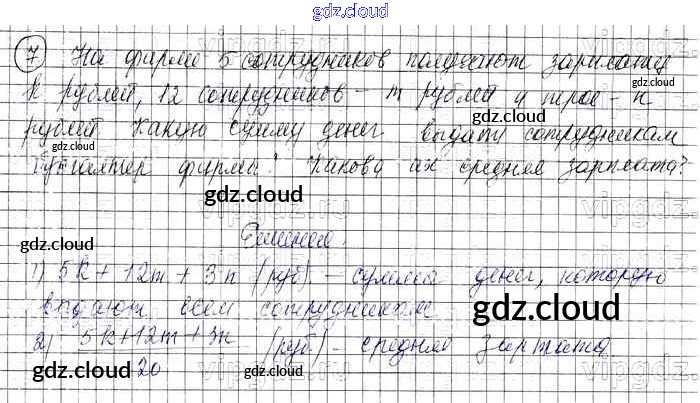 gdz.cloud
7 На фирме 5 сотрудников получают зарплату
k рублей, 12 сотрудников – m рублей и трое – n
рублей. Какую сумму денег выдаст сотрудникам
бухгалтер фирмы? Какова их средняя зарплата?
Решение.
1) 5k + 12m + 3n (руб.) – сумма денег, которую
выдают всем сотрудникам
2) 5k+12m+3n / 20 (руб.) – средняя зарплата
gdz.cloud
gdz.cloud
gdz.cloud
gdz.cloud
gdz.cloud
gdz.cloud
gdz.cloud
gdz.cloud
gdz.cloud
gdz.cloud